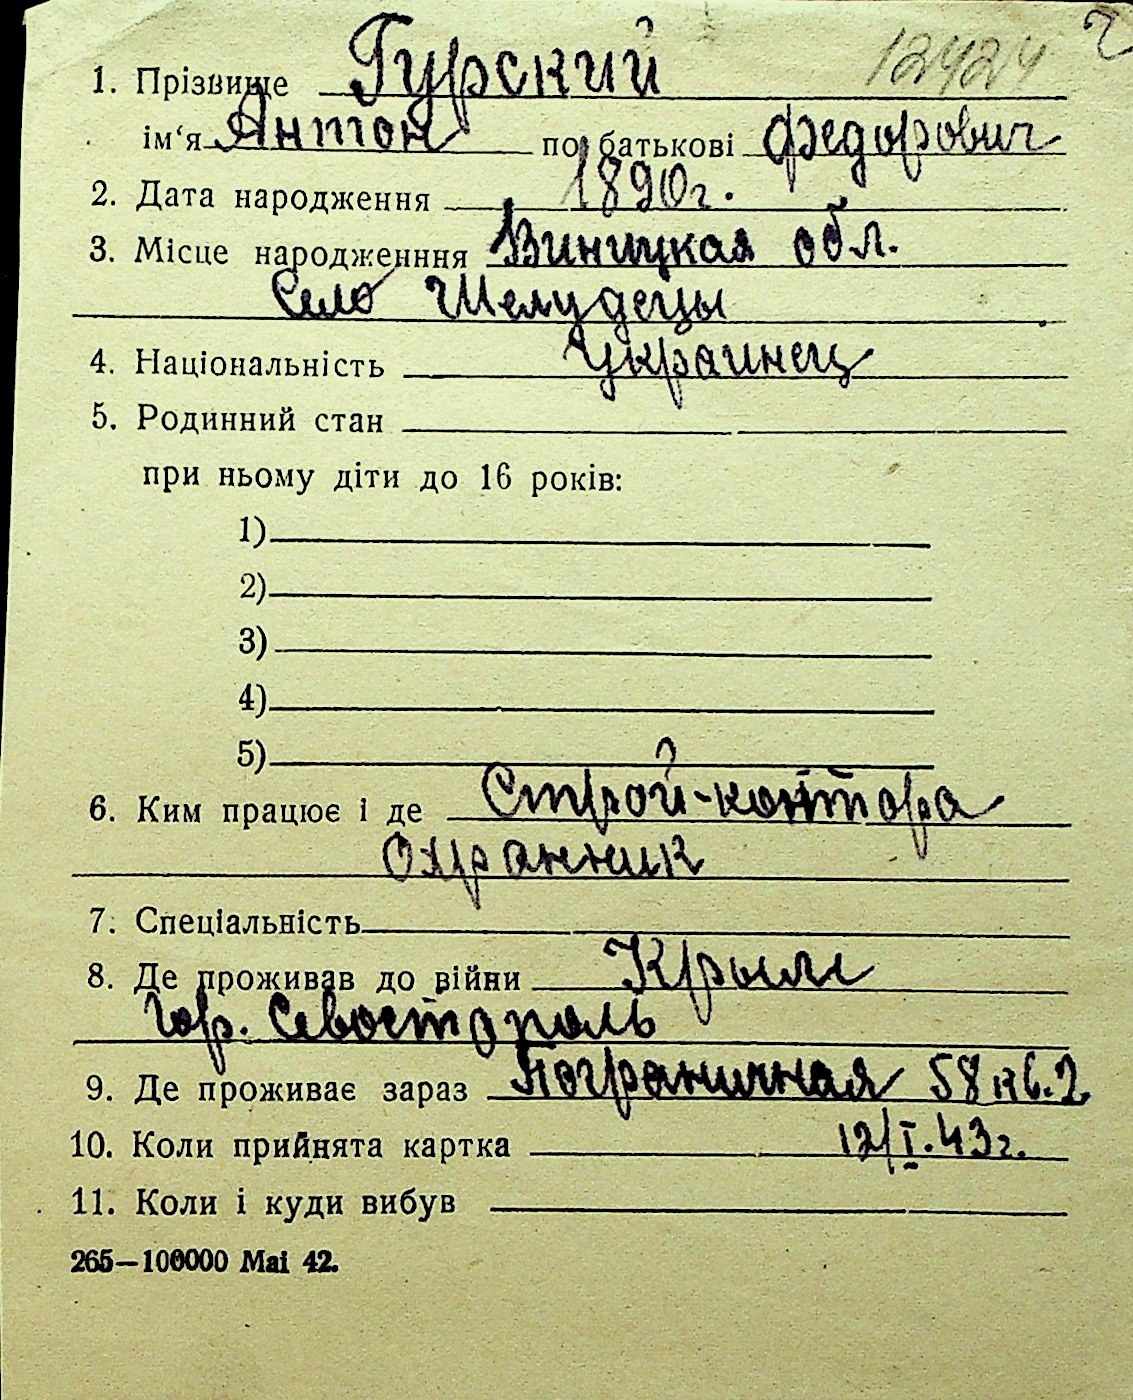 12424 г
1. Прізвище Гурский
ім‘я Антон по батькові Федорович
2. Дата народження 1890г.
3. Місце народженння Виницкая обл.
Село Шелудецы
4. Національність Украинец
5. Родинний стан
при ньому діти до 16 років:
1)
2)
3)
4)
5)
6. Ким працює і де Строй-контора
Охранник
7. Спеціальність
8. Де проживав до війни Крым
Гор. Севостополь
9. Де проживає зараз Пограничная 58 кв. 2
10. Коли прийнята картка 12/I.43г.
11. Коли і куди вибув
265—100000 Mai 42.